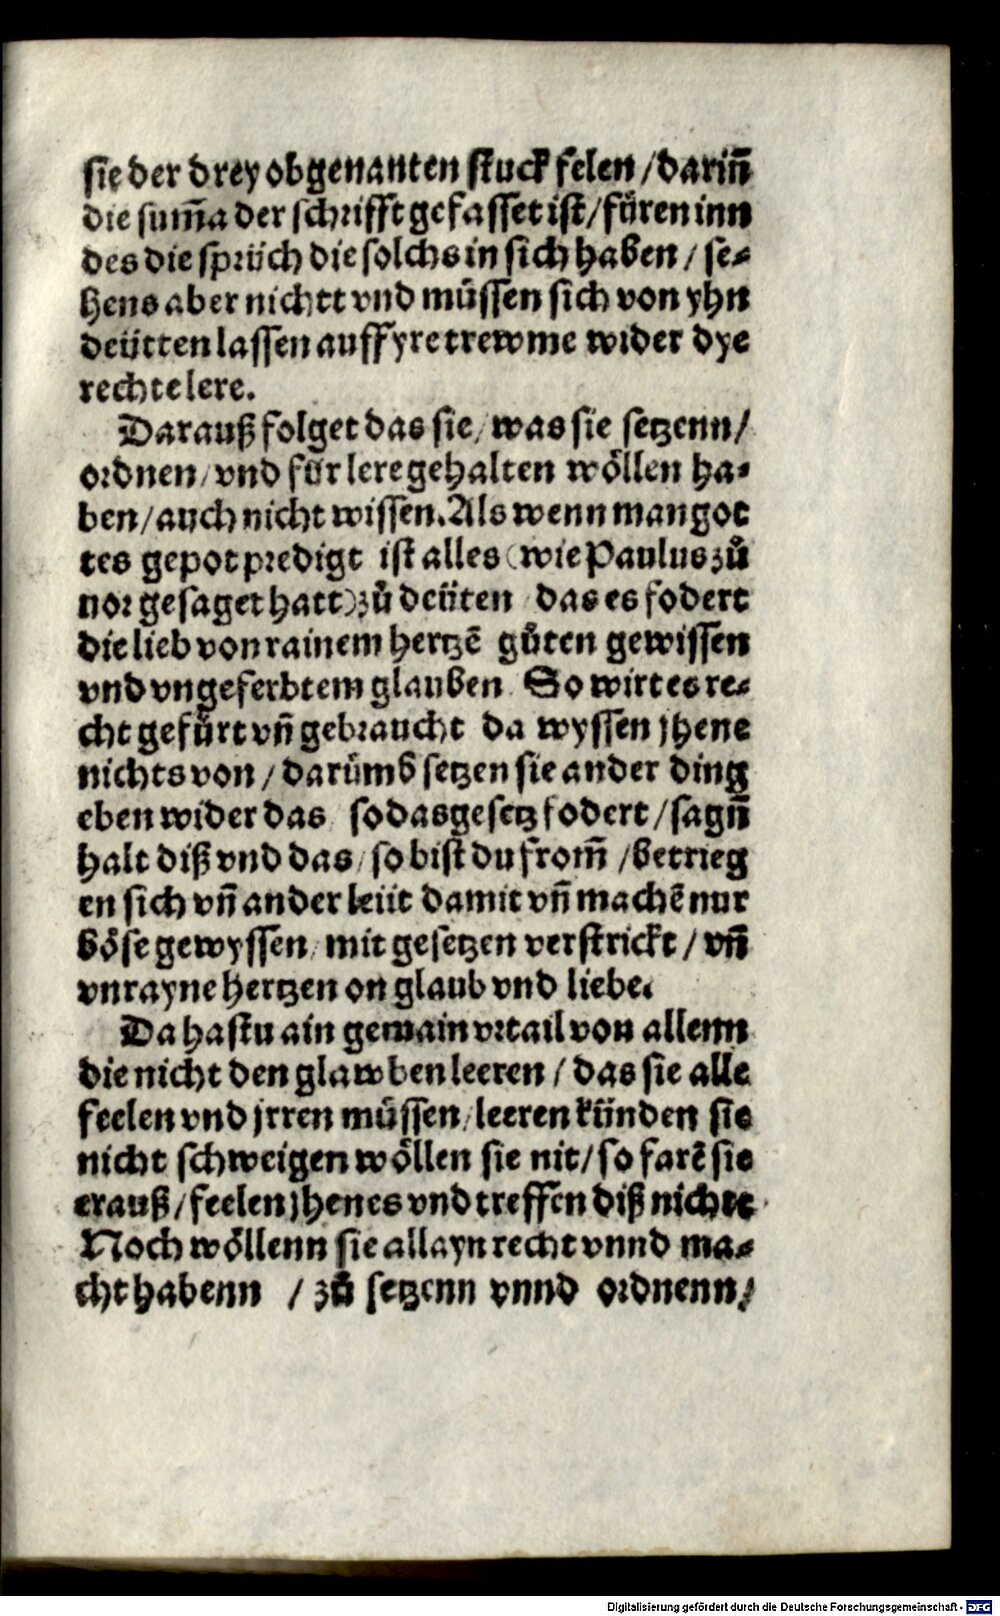 sie der drey obgenanten stuck felen / dariñ
die sum̃a der schrifft gefasset ist / füren inn
des die sprüch die solchs in sich haben / se⸗
hens aber nichtt vnd müssen sich von yhn
deütten lassen auff yre trewme wider dye
rechte lere.
Darauß folget das sie / was sie setzenn /
ordnen / vnd für lere gehalten wöllen ha⸗
ben / auch nicht wissen. Als wenn man got
tes gepot predigt ist alles (wie Paulus zů
uor gesaget hatt) zů deüten das es fodert
die lieb von rainem hertzē gůten gewissen
vnd vngeferbtem glauben So wirt es re⸗
cht gefürt vñ gebraucht da wyssen jhene
nichts von / darümb setzen sie ander ding
eben wider das so das gesetz fodert / sagñ
halt diß vnd das / so bist du from̃ / betrieg
en sich vñ ander leüt damit vñ machē nur
böse gewyssen / mit gesetzen verstrickt / vñ
vnrayne hertzen on glaub vnd liebe.
Da hastu ain gemain vrtail von allenn
die nicht den glawben leeren / das sie alle
feelen vnd jrren müssen / leeren künden sie
nicht schweigen wöllen sie nit / so farē sie
erauß / feelen jhenes vnd treffen diß nichtt
Noch wöllenn sie allayn recht vnnd ma⸗
cht habenn / zů setzenn vnnd ordnenn /
Digitalisierung gefördert durch die Deutsche Forschungsgemeinschaft - DFG